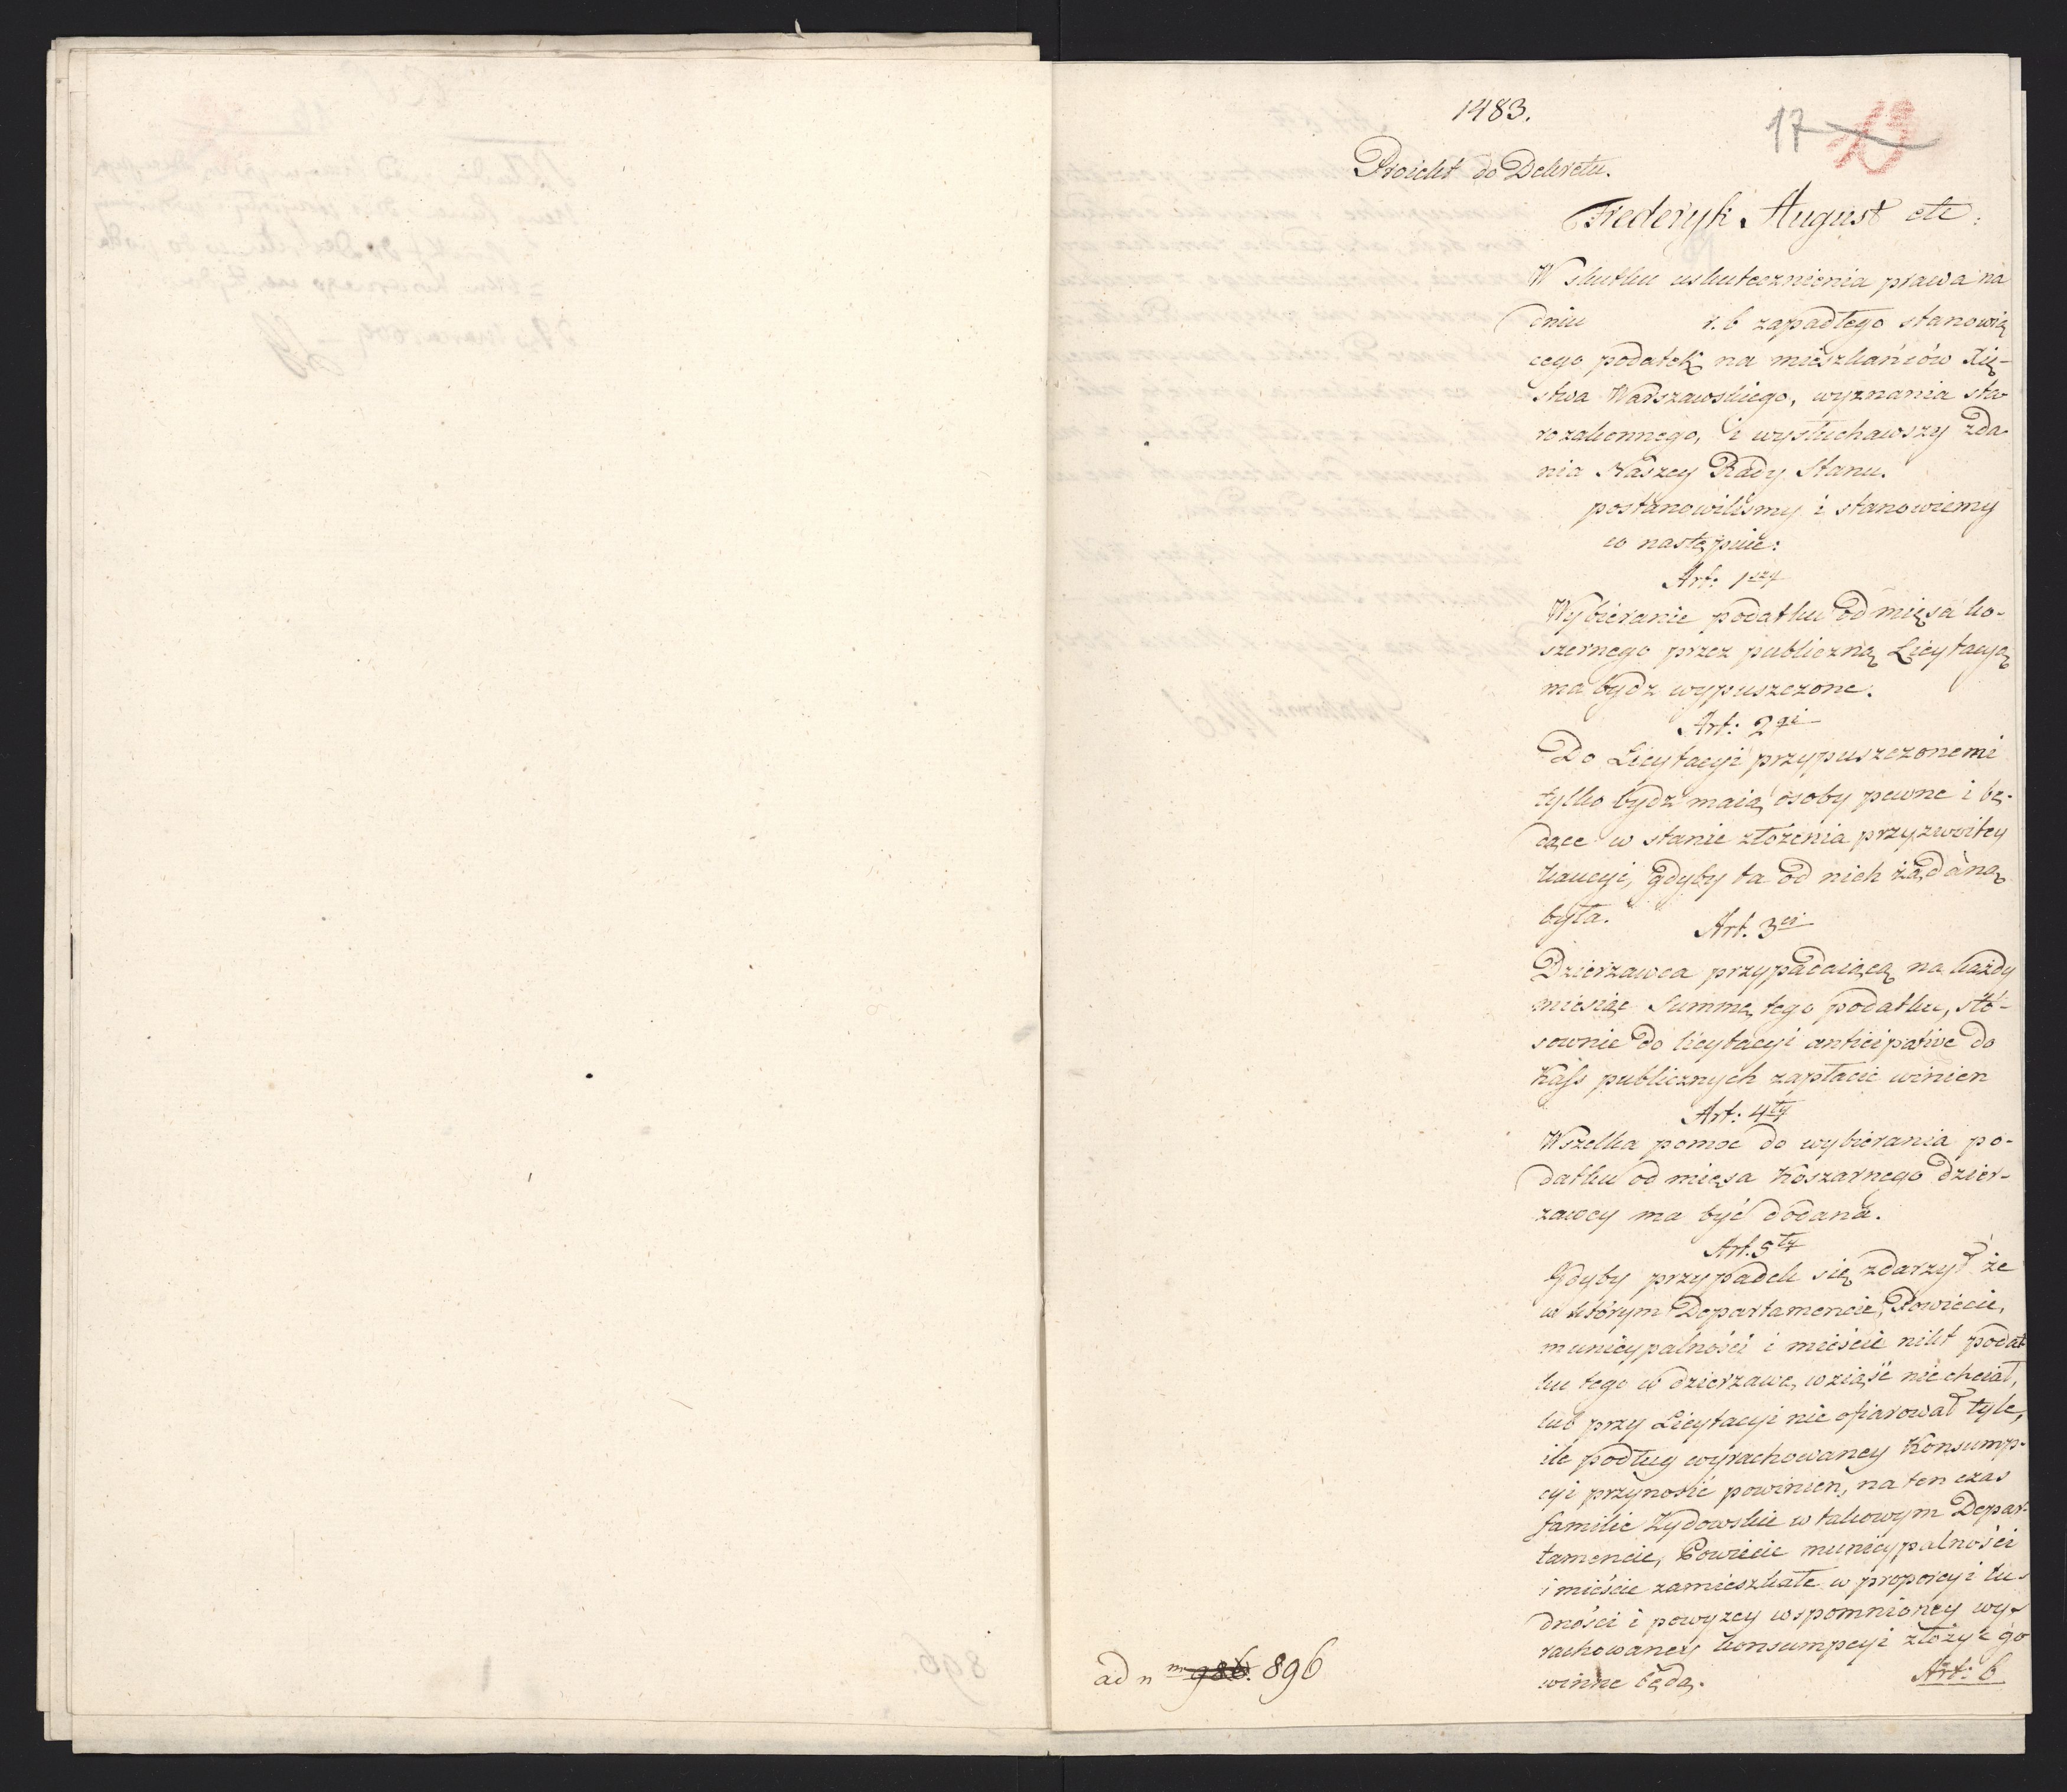 1483.
17 13
Proiekt do Dekretu.
Frederyk August etc:
W skutku uskutecznienia prawa na
dniu r. b zapadłego stanowią
cego podatek na mieszkańców Xię-
stwa Warszawskiego, wyznania sta
rozakonnego, i wysłuchawszy zda
nia Naszey Rady Stanu.
postanowiliśmy i stanowiemy
co następuie:
Art: 1szy
Wybieranie podatku od mięsa ko-
szernego przez publiczną Licytacyą
ma bydz wypuszczone.
Art: 2gi
Do Licytacyi przypuszczonemi
tylko bydz maią osoby pewne i bę-
dące w stanie złożenia przyzwoitey
kaucyi, gdyby ta od nich żądaną
była.
Art. 3ci
Dzierzawca przypadaiącą na każdy
miesiąc Summę tego podatku, sto-
sownie do licytacyi anticipative do
Kass publicznych zapłacić winien
Art: 4ty
Wszelka pomoc do wybierania po-
datku od mięsa Koszarnego dzier-
zawcy ma być dodana.
Art. 5ty
Gdyby przypadek się zdarzył że
w którym Departamencie, Powiecie,
municypalności i mieście nikt podat
ku tego w dzierzawę wziąść nie chciał,
lub przy Licytacyi nie ofiarował tyle,
ile podług wyrachowaney Konsump-
cyi przynosić powinien, na ten czas
familie Żydowskie w takowym Depar-
tamencie, Powiecie municypalności
i mieście zamieszkałe w proporcyi lu-
dności i powyzey wspomnioney wy-
rachowaney konsumpcyi złożyć go
winne będą.
Art: 6
ad nm 986. 896